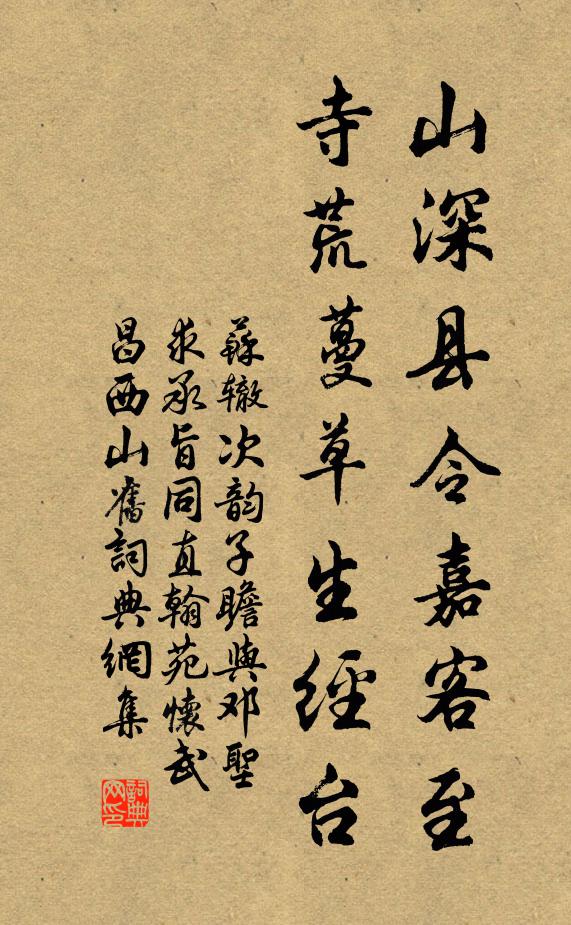 山深县令嘉客至
寺荒蔓草生经台
蘇辙次韵子瞻與邓聖
求承旨同直翰苑懷武
昌西山舊詞典網集
詞典
网印